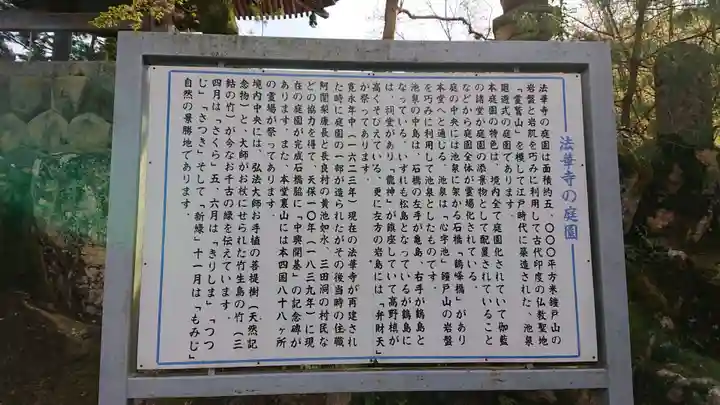 法華寺の庭園
法華寺の庭園は面積約五、〇〇〇平方米鐘戸山の
岩盤と岩肌を巧みに利用して古代印度の仏教聖地
「霊鷲山」を模して江戸時代に築造された、池泉
廻遊式の庭園であります。
本庭園の特色は、境内全て庭園化されていて伽藍
の諸堂が庭園の添景物として配置されていること
などから庭園全体が霊場化されている。
庭の中央には池泉に架かる石橋「鶴峰橋」があり
本堂へと通じる。池泉は「心字池」鐘戸山の岩盤
を巧みに利用して池泉としたものです。
池泉の中島は、石橋の左手が亀島、右手が鶴島と
なっている。いずれも松島となっているが鶴島に
は、祠堂があり「龍神」が鎮座していて高野槙が
高くそびえている。更に左方の岩島には「弁財天」
が祭ってあります。
寛永年中(一六二三年)現在の法華寺が再建され
た時に庭園の一部が造られたがその後当時の住職
阿闍梨康長と長良村の黄池如水、三田洞の村民な
どの協力を得て、天保一〇年(一八三九年)に現
在の庭園が完成石橋脇に「中興開基」の記念碑が
あります。また、本堂裏山には本四国八十八ヶ所
の霊場が祭ってあります。
境内中央には、弘法大師お手植の菩提樹(天然記
念物)と、大師がお杖にせられた竹生島の竹(三
鈷の竹)が今なお千古の緑を伝えています。
四月は「さくら」五、六月は「きりしま」「つつ
じ」「さつき」そして「新緑」十一月は「もみじ」
自然の景勝地であります。